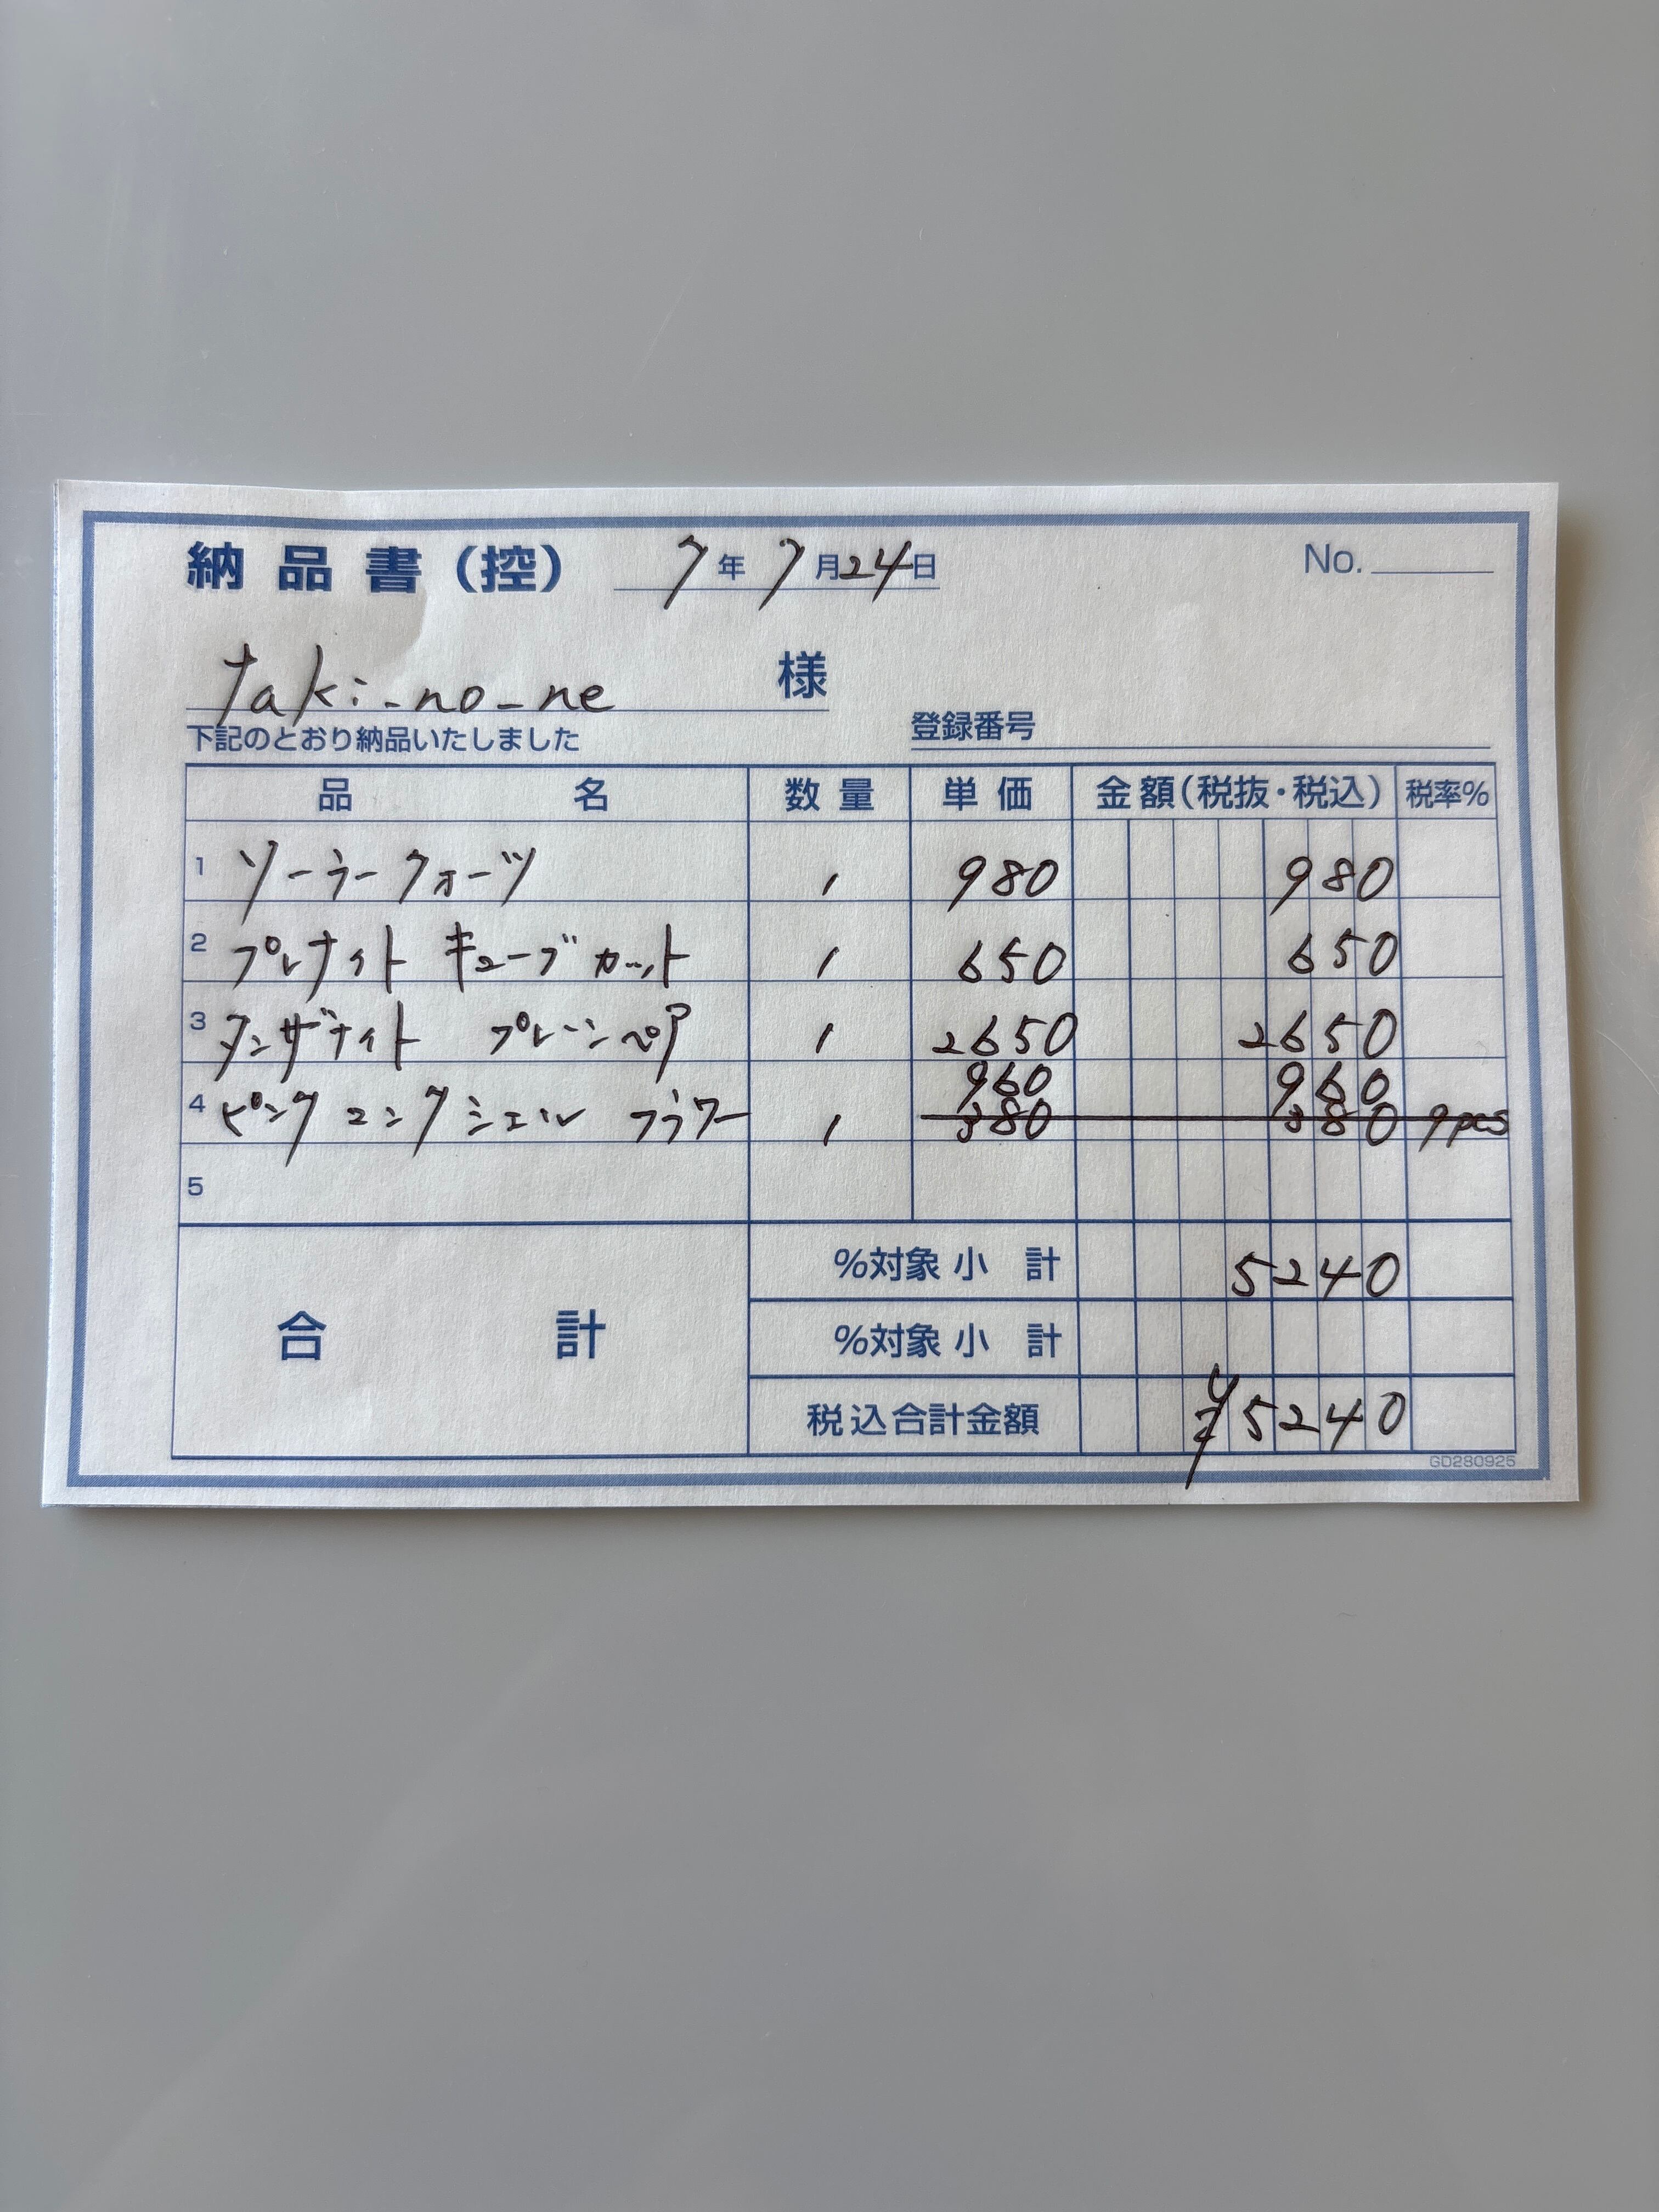 納品書(控) 7年7月24日 No.
taki-no-ne 様
下記のとおり納品いたしました 登録番号
品名 数量 単価 金額(税抜・税込) 税率%
1 ソーラークォーツ 1 980 980
2 プレナイト キューブカット 1 650 650
3 タンザナイト プレーンペア 1 2650 2650
960 960
4 ピンクコンクシェル フラワー 1 380 380 9pcs
5
%対象小計 5240
合計 %対象小計
税込合計金額 ¥5240
GD280925